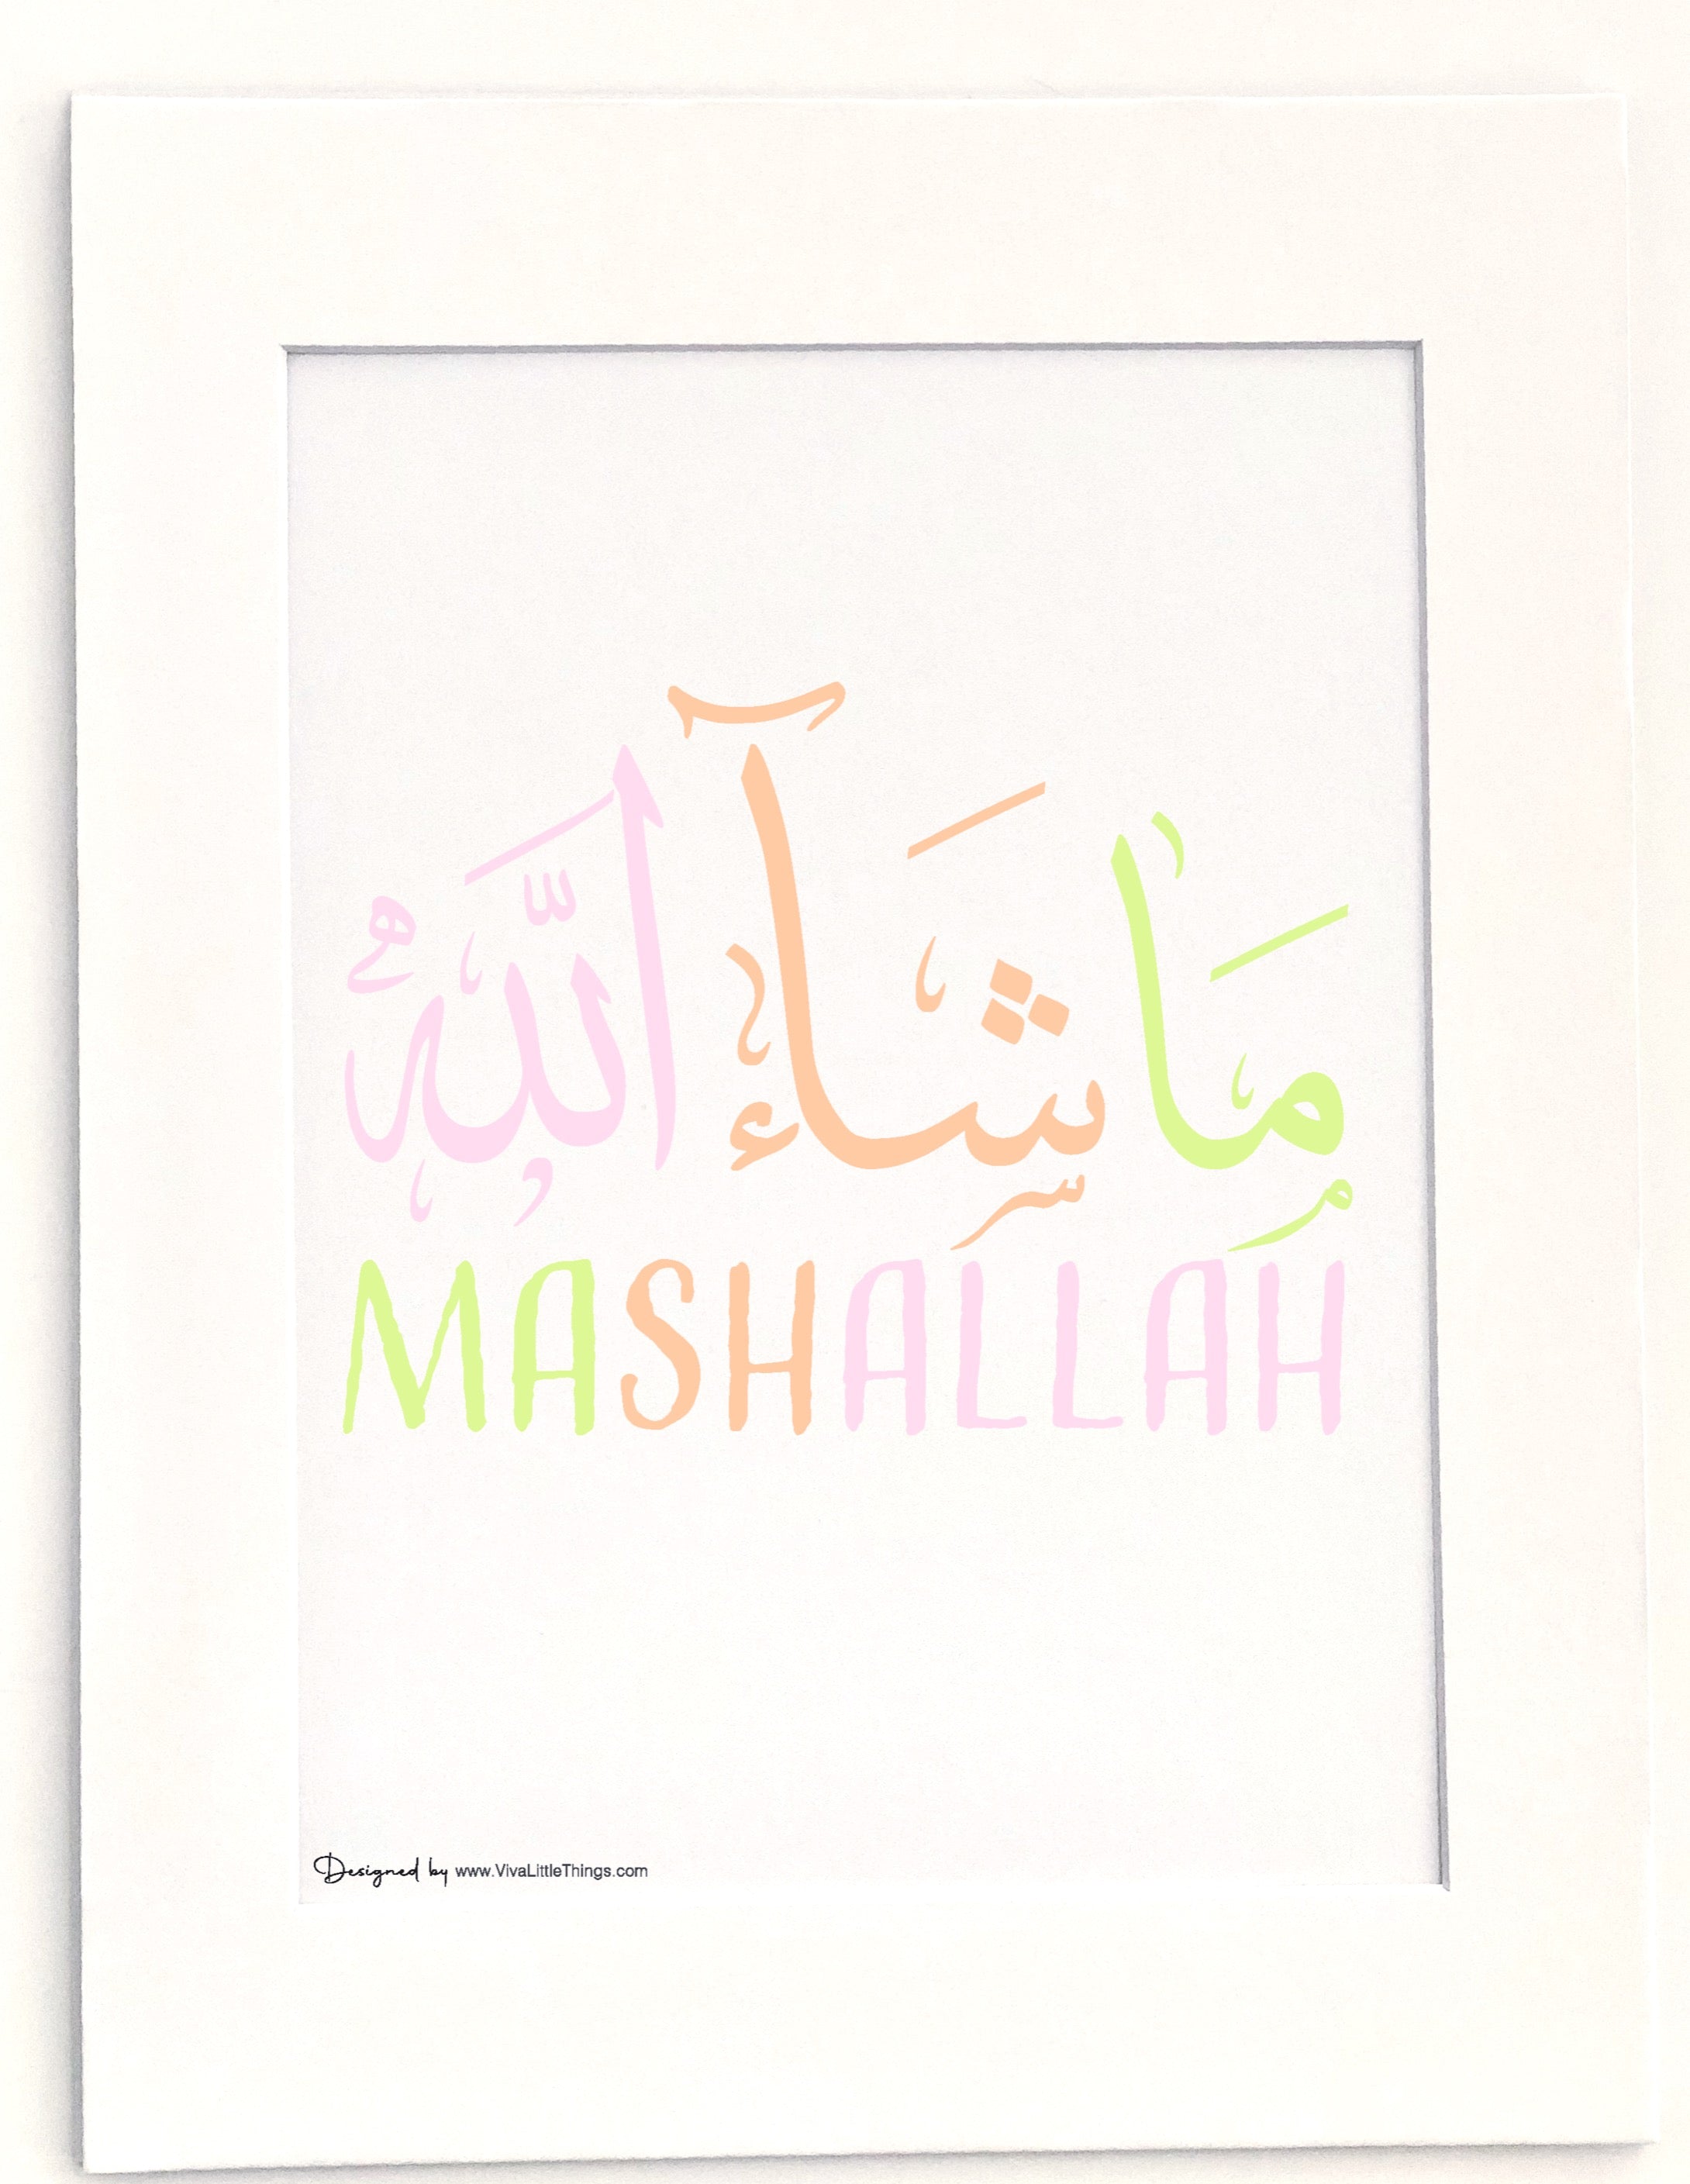 مَا شَآءَ اللَّهُ
MASHALLAH
Designed by www.VivaLittleThings.com